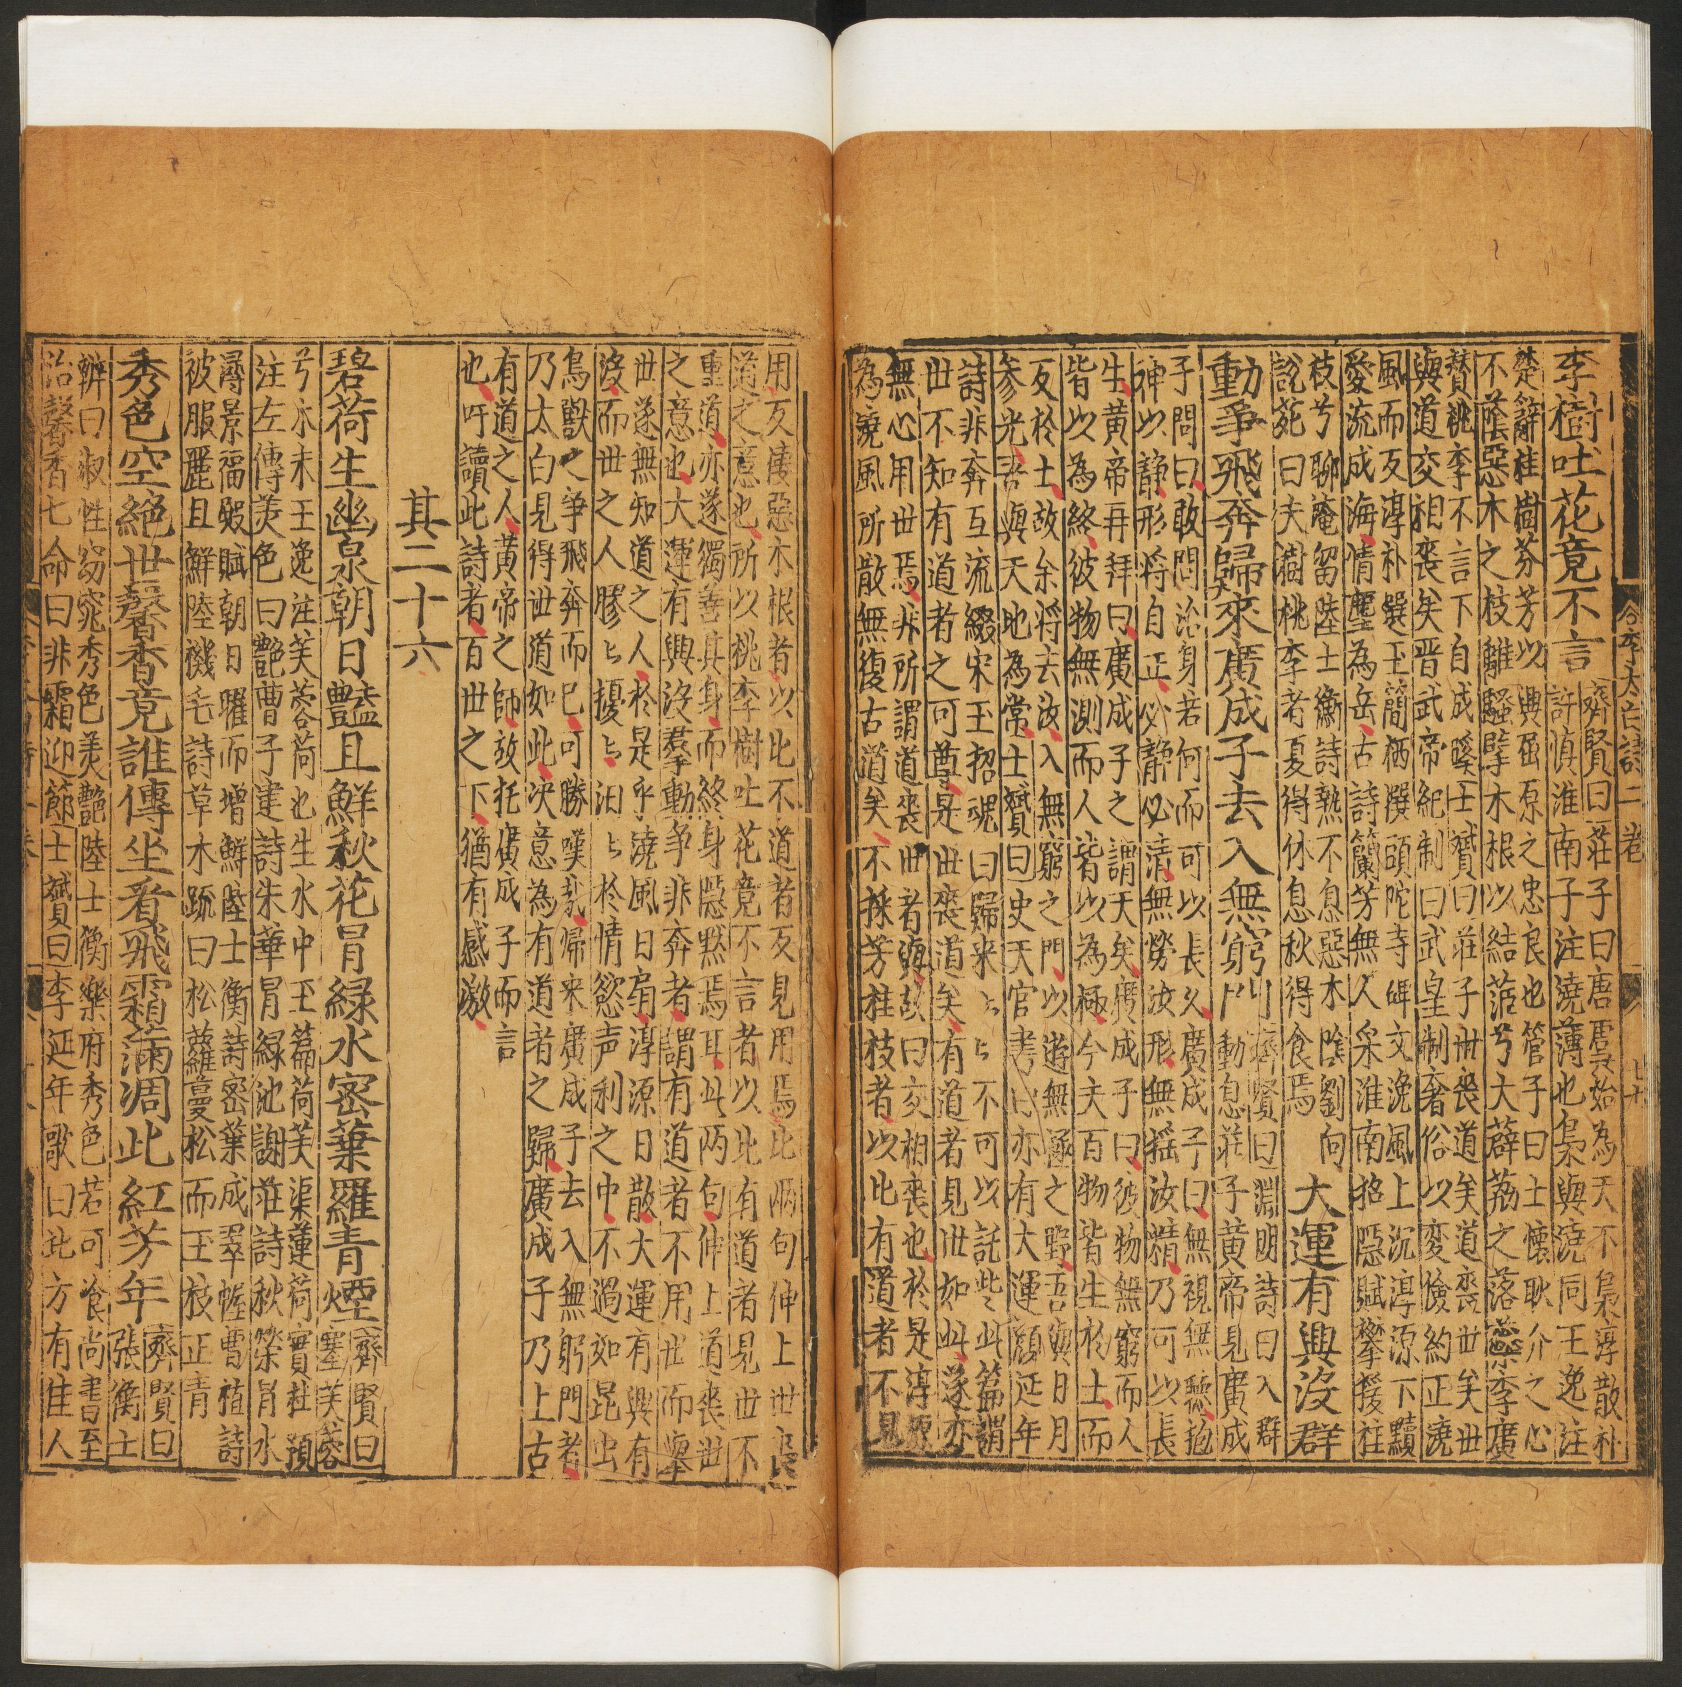 李樹吐花竟不言
齊賢曰莊子曰唐虞始為天下梟淳散朴
許慎淮南子注澆薄也梟與澆同王逸注
楚辭桂樹芬芳以興屈原之忠良也管子曰士懷耿介之心
不蔭惡木之枝離騷擥木根以結茝兮大薜荔之落蘂李廣
賛桃李不言下自成蹊士贇曰莊子世喪道矣道喪世矣世
與道交相喪矣晋武帝紀制曰武皇制奢俗以変儉約正澆
風而反淳朴選王簡栖撰頭陀寺碑文浼風上沉淳源下黷
愛流成海情塵為岳古詩蘭芳無人采淮南招隱賦攀援桂
枝兮聊淹留陸士衡詩熱不息惡木陰劉向
說苑曰夫樹桃李者夏得休息秋得食焉
大運有興沒群
動爭飛奔歸來廣成子去入無窮門
齊賢曰淵明詩曰入群
動息莊子黃帝見廣成
子問曰敢問治身若何而可以長久廣成子曰無視無聽抱
神以静形将自正必静必清無勞汝形無揺汝精乃可以長
生黄帝再拜曰廣成子之謂天矣廣成子曰彼物無窮而人
皆以為終彼物無測而人皆以為極今夫百物皆生於土而
反於土故余将去汝入無窮之門以遊無極之野吾與日月
参光吾與天地為常士贇曰史天官書亦有大運顔延年
詩非奔互流綴宋玉招魂曰歸来ㄣㄣ不可以託些此篇謂
世不知有道者之可尊是世喪道矣有道者見世如此遂亦
無心用世焉非所謂道喪世者與故曰交相喪也於是淳源
為澆風所散無復古道矣不採芳桂枝者以比有道者不見
用反棲惡木根者以比不道者反見用焉比兩句伸上世喪
道之意也所以桃李樹吐花竟不言者以比有道者見世不
重道亦遂獨善其身而終身隱黙焉耳此兩句伸上道喪世
之意也大運有興沒羣動争非奔者謂有道者不用世而舉
世遂無知道之人於是乎澆風日扇淳源日散大運有興有
沒而世之人膠ㄣ擾ㄣ汨ㄣ於情慾声利之中不過如昆虫
鳥獸之争飛奔而已可勝嘆哉帰来廣成子去入無躬門者
乃太白見得世道如此决意為有道者之歸廣成子乃上古
有道之人黄帝之師故托廣成子而言
也吁讀此詩者百世之下猶有感激
其二十六
碧荷生幽泉朝日豔且鮮秋花冐緑水密葉羅青煙
齊賢曰
塞芙蓉
兮木末王逸注芙蓉荷也生水中王篇荷芙渠蓮荷實杜預
注左傳美色曰艷曹子建詩朱華冐緑池謝莊詩秋榮冐水
潯景福殿賦朝日曜而增鮮陸士衡詩密葉成翠幄曹植詩
被服麗且鮮陸機毛詩草木疏曰松蘿蔓松而王枝正青
秀色空絕世馨香竟誰傳坐看飛霜滿凋此紅芳年
齊賢曰
張衡士
辨曰淑性窈窕秀色美艷陸士衡樂府秀色若可飡尚書至
治馨香七命曰非霜迎節士贇曰李延年歌曰北方有佳人
合李太白詩二卷